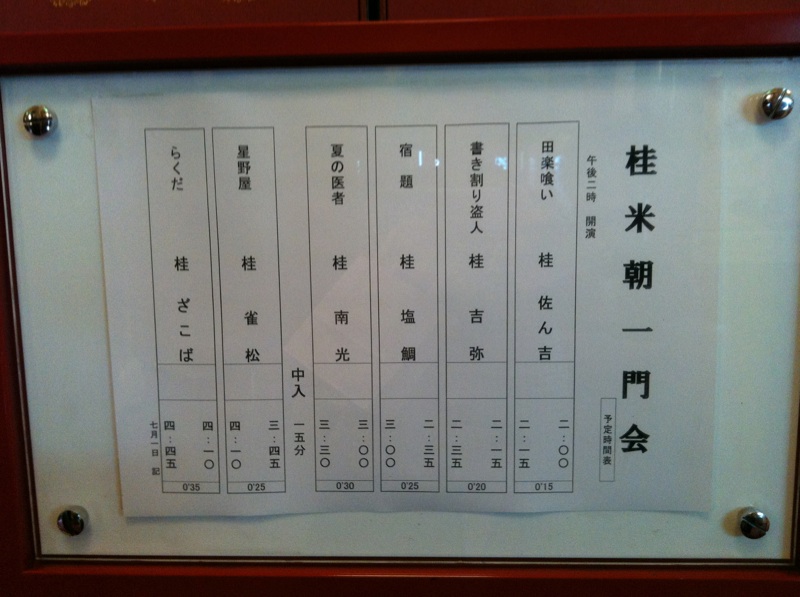 桂米朝一門会
予定時間表
午後二時 開演
田楽喰い 桂 佐ん吉
二:〇〇
二:一五
0'15
書き割り盗人 桂 吉弥
二:一五
二:三五
0'20
宿題 桂 塩鯛
二:三五
三:〇〇
0'25
夏の医者 桂 南光
三:〇〇
三:三〇
0'30
中入 一五分
星野屋 桂 雀松
三:四五
四:一〇
0'25
らくだ 桂 ざこば
四:一〇
四:四五
0'35
七月一日 記